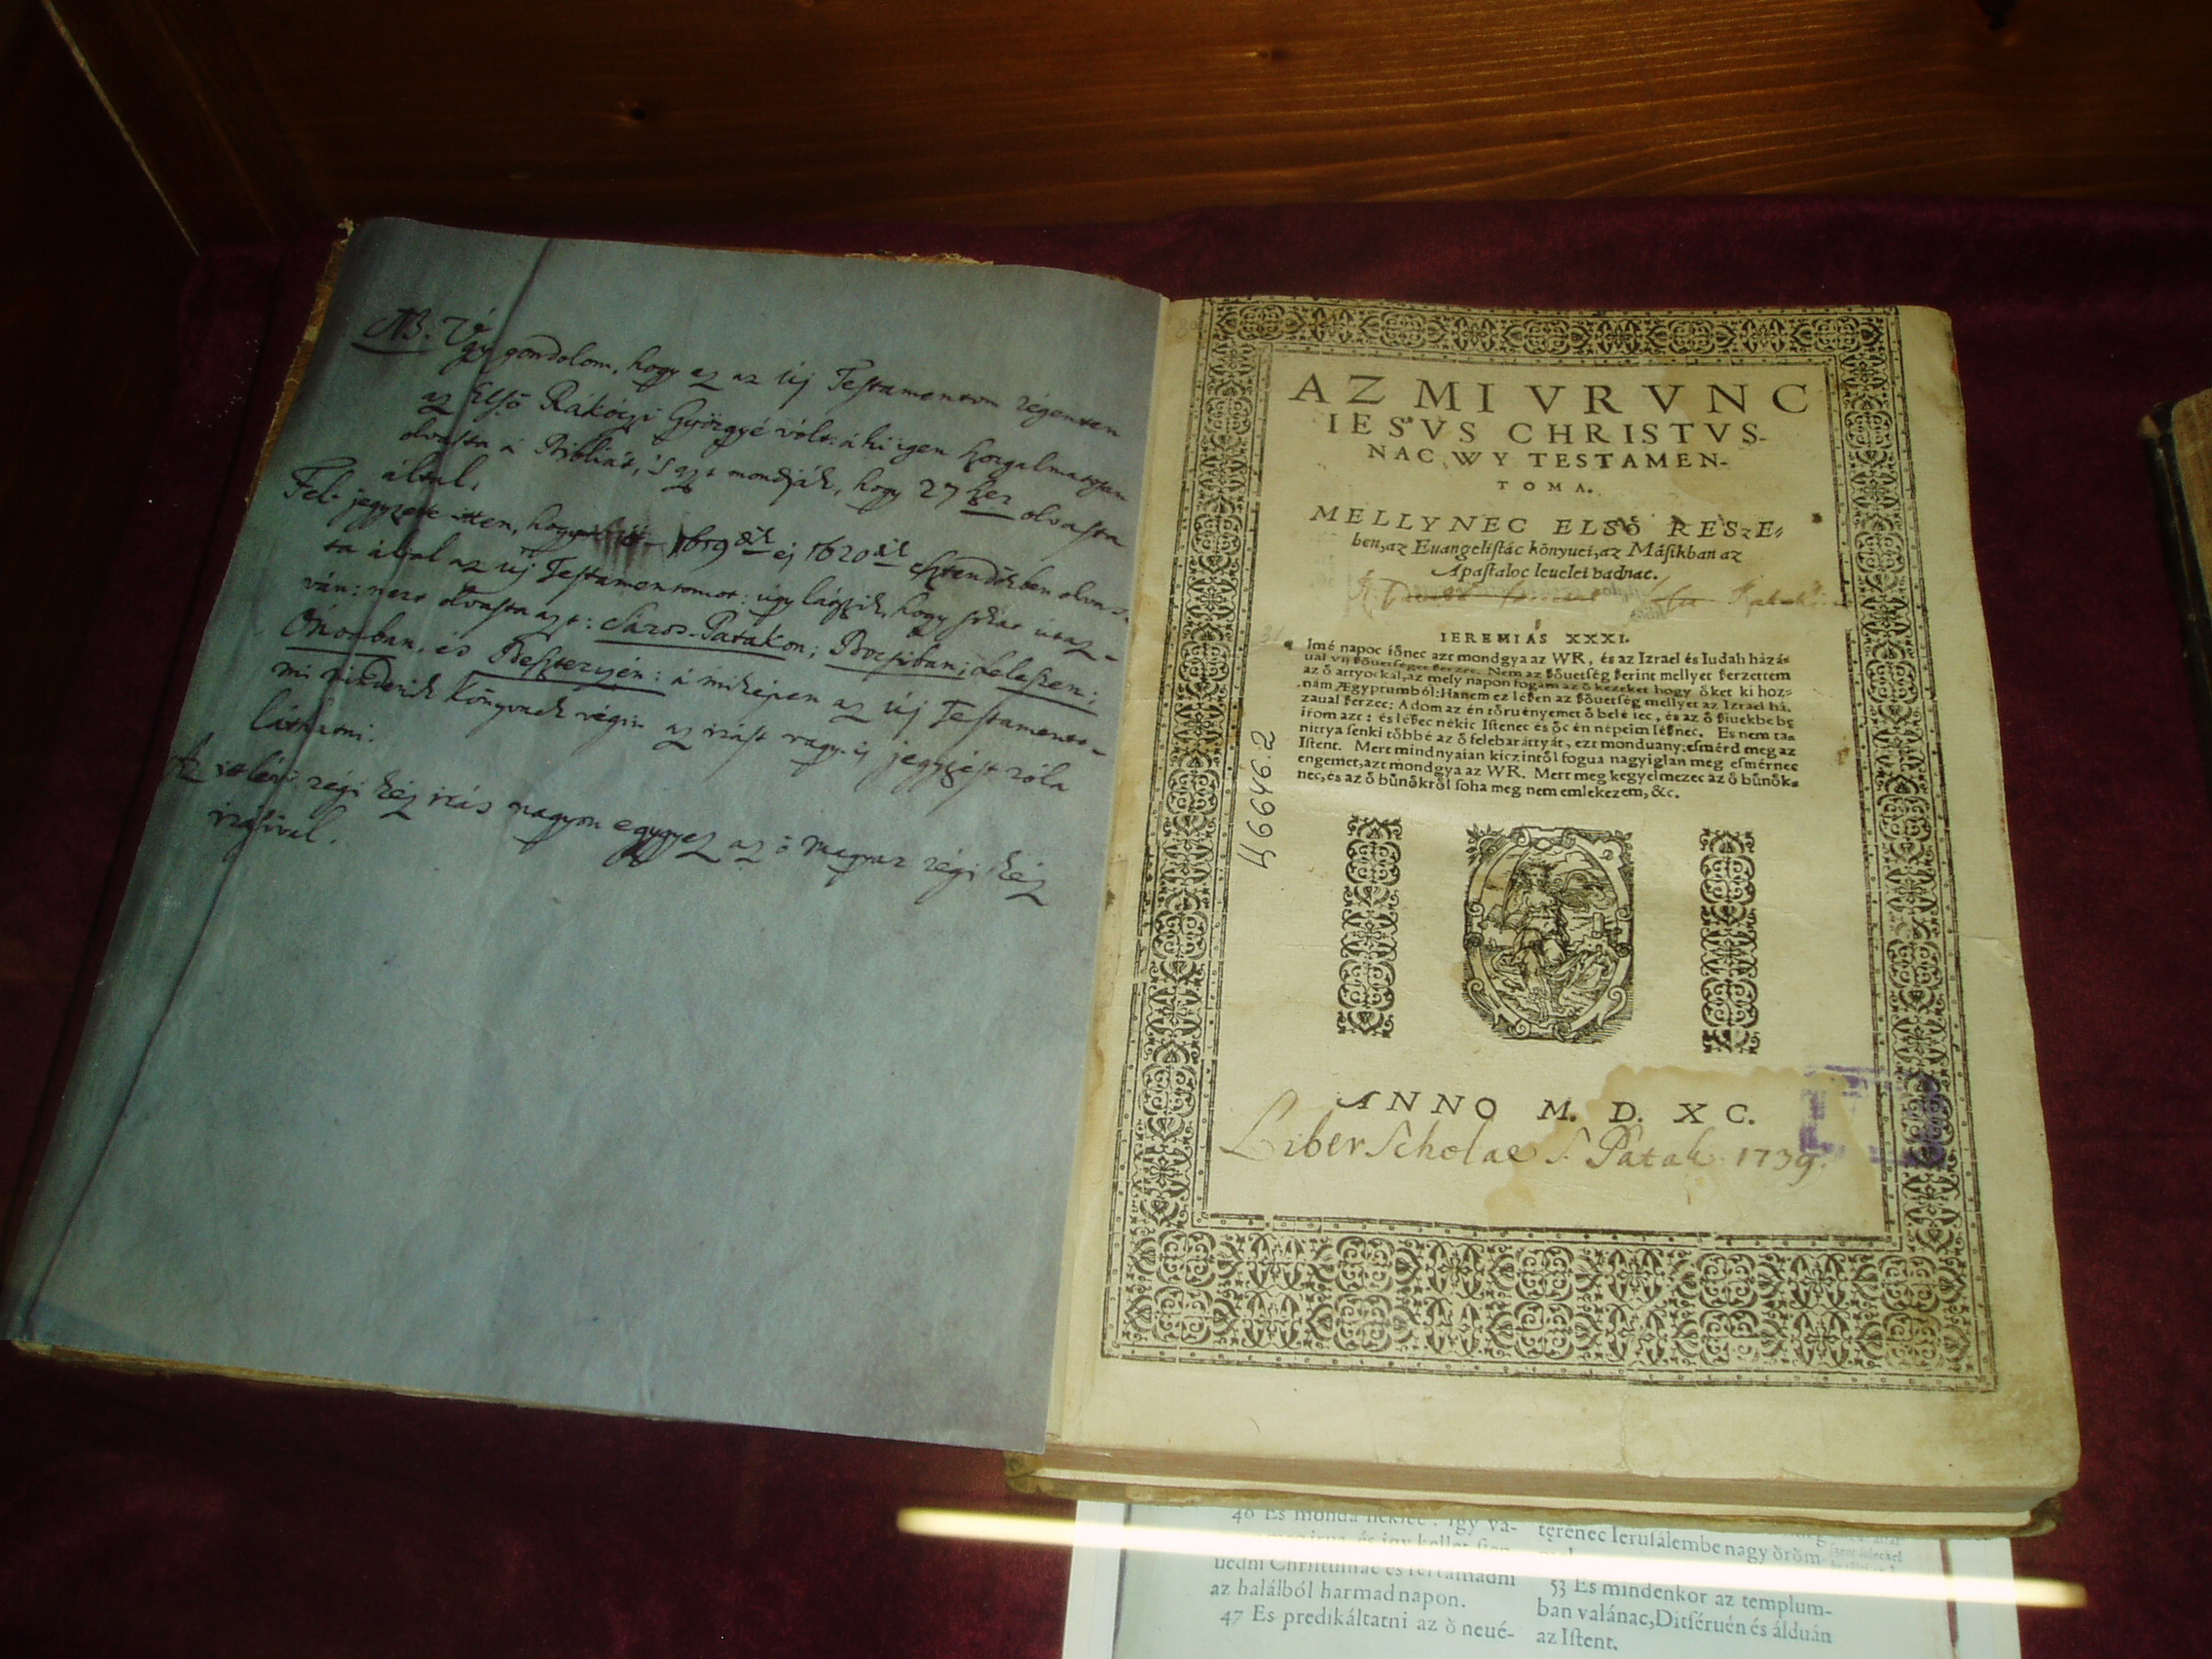 NB. Úgy gondolom, hogy ez az Uj Testamentom régenten
az Első Rákóczi Györgyé vólt: á ki igen szorgalmatosan
olvasta á Bibliát, 's azt mondják, hogy 27 szer olvasta
által.
Fel jegyzette itten, hogy 1619 dik és 1620 dik esztendőkben olvas-
ta által az Uj Testamentomot: úgy látszik, hogy sokat utaz-
ván: mert olvasta azt: Saros-Patakon; Börsiben; Leleszen;
Ónodban, és Beszterczén: á miképen az Uj Testamentomi
mindenik Könyvnek végin az irást vagy is jegyzést róla
láthatni.
Az itt lévő régi kéz irás nagyon egygyez az ő magyar régi kéz
irásival.
AZ MI VRVNC
IESVS CHRISTVS-
NAC WY TESTAMEN-
TOMA.
MELLYNEC ELSŐ RESzE-
ben, az Euangelistác kőnyuei, az Másikban az
Apastaloc leuelei vadnac.
IEREMIAS XXXI.
Imé napoc iőnec azt mondgya az WR, és az Izrael és Iudah házá-
ual vij szőuetséget szerzec. Nem az szőuetség szerint mellyet szerzettem
az ő attyockál, az mely napon fogám az ő kezeket hogy őket ki hoz-
nám Ægyptumból: Hanem ez lészen az szőuetség mellyet az Izrael há-
záual szerzec: Adom az én tőruényemet ő belé iec, és az ő sziuekbe be
irom azt: és lészec nékic Istenec és őc én népeim lésznec. Es nem ta-
nittya senki tőbbé az ő felebaráttyát, ezt monduany: esmérd meg az
Istent. Mert mindnyaian kiczintől fogua nagyiglan meg esmérnec
engemet, azt mondgya az WR. Mert meg kegyelmezec az ő bűnők-
nec, és az ő bűnőkről soha meg nem emlekezem, &c.
46646.2
ANNO M. D. XC.
Liber Scholae S. Patak. 1739.
46 Es monda nékiec: Igy va-
uedni Christusnac és fel támadni
az halálból harmad napon.
47 Es predikáltatni az ő neué-
térénec Ierusálembe nagy őrőm-
53 Es mindenkor az templum-
ban valánac, Ditséruén és álduán
az Istent.